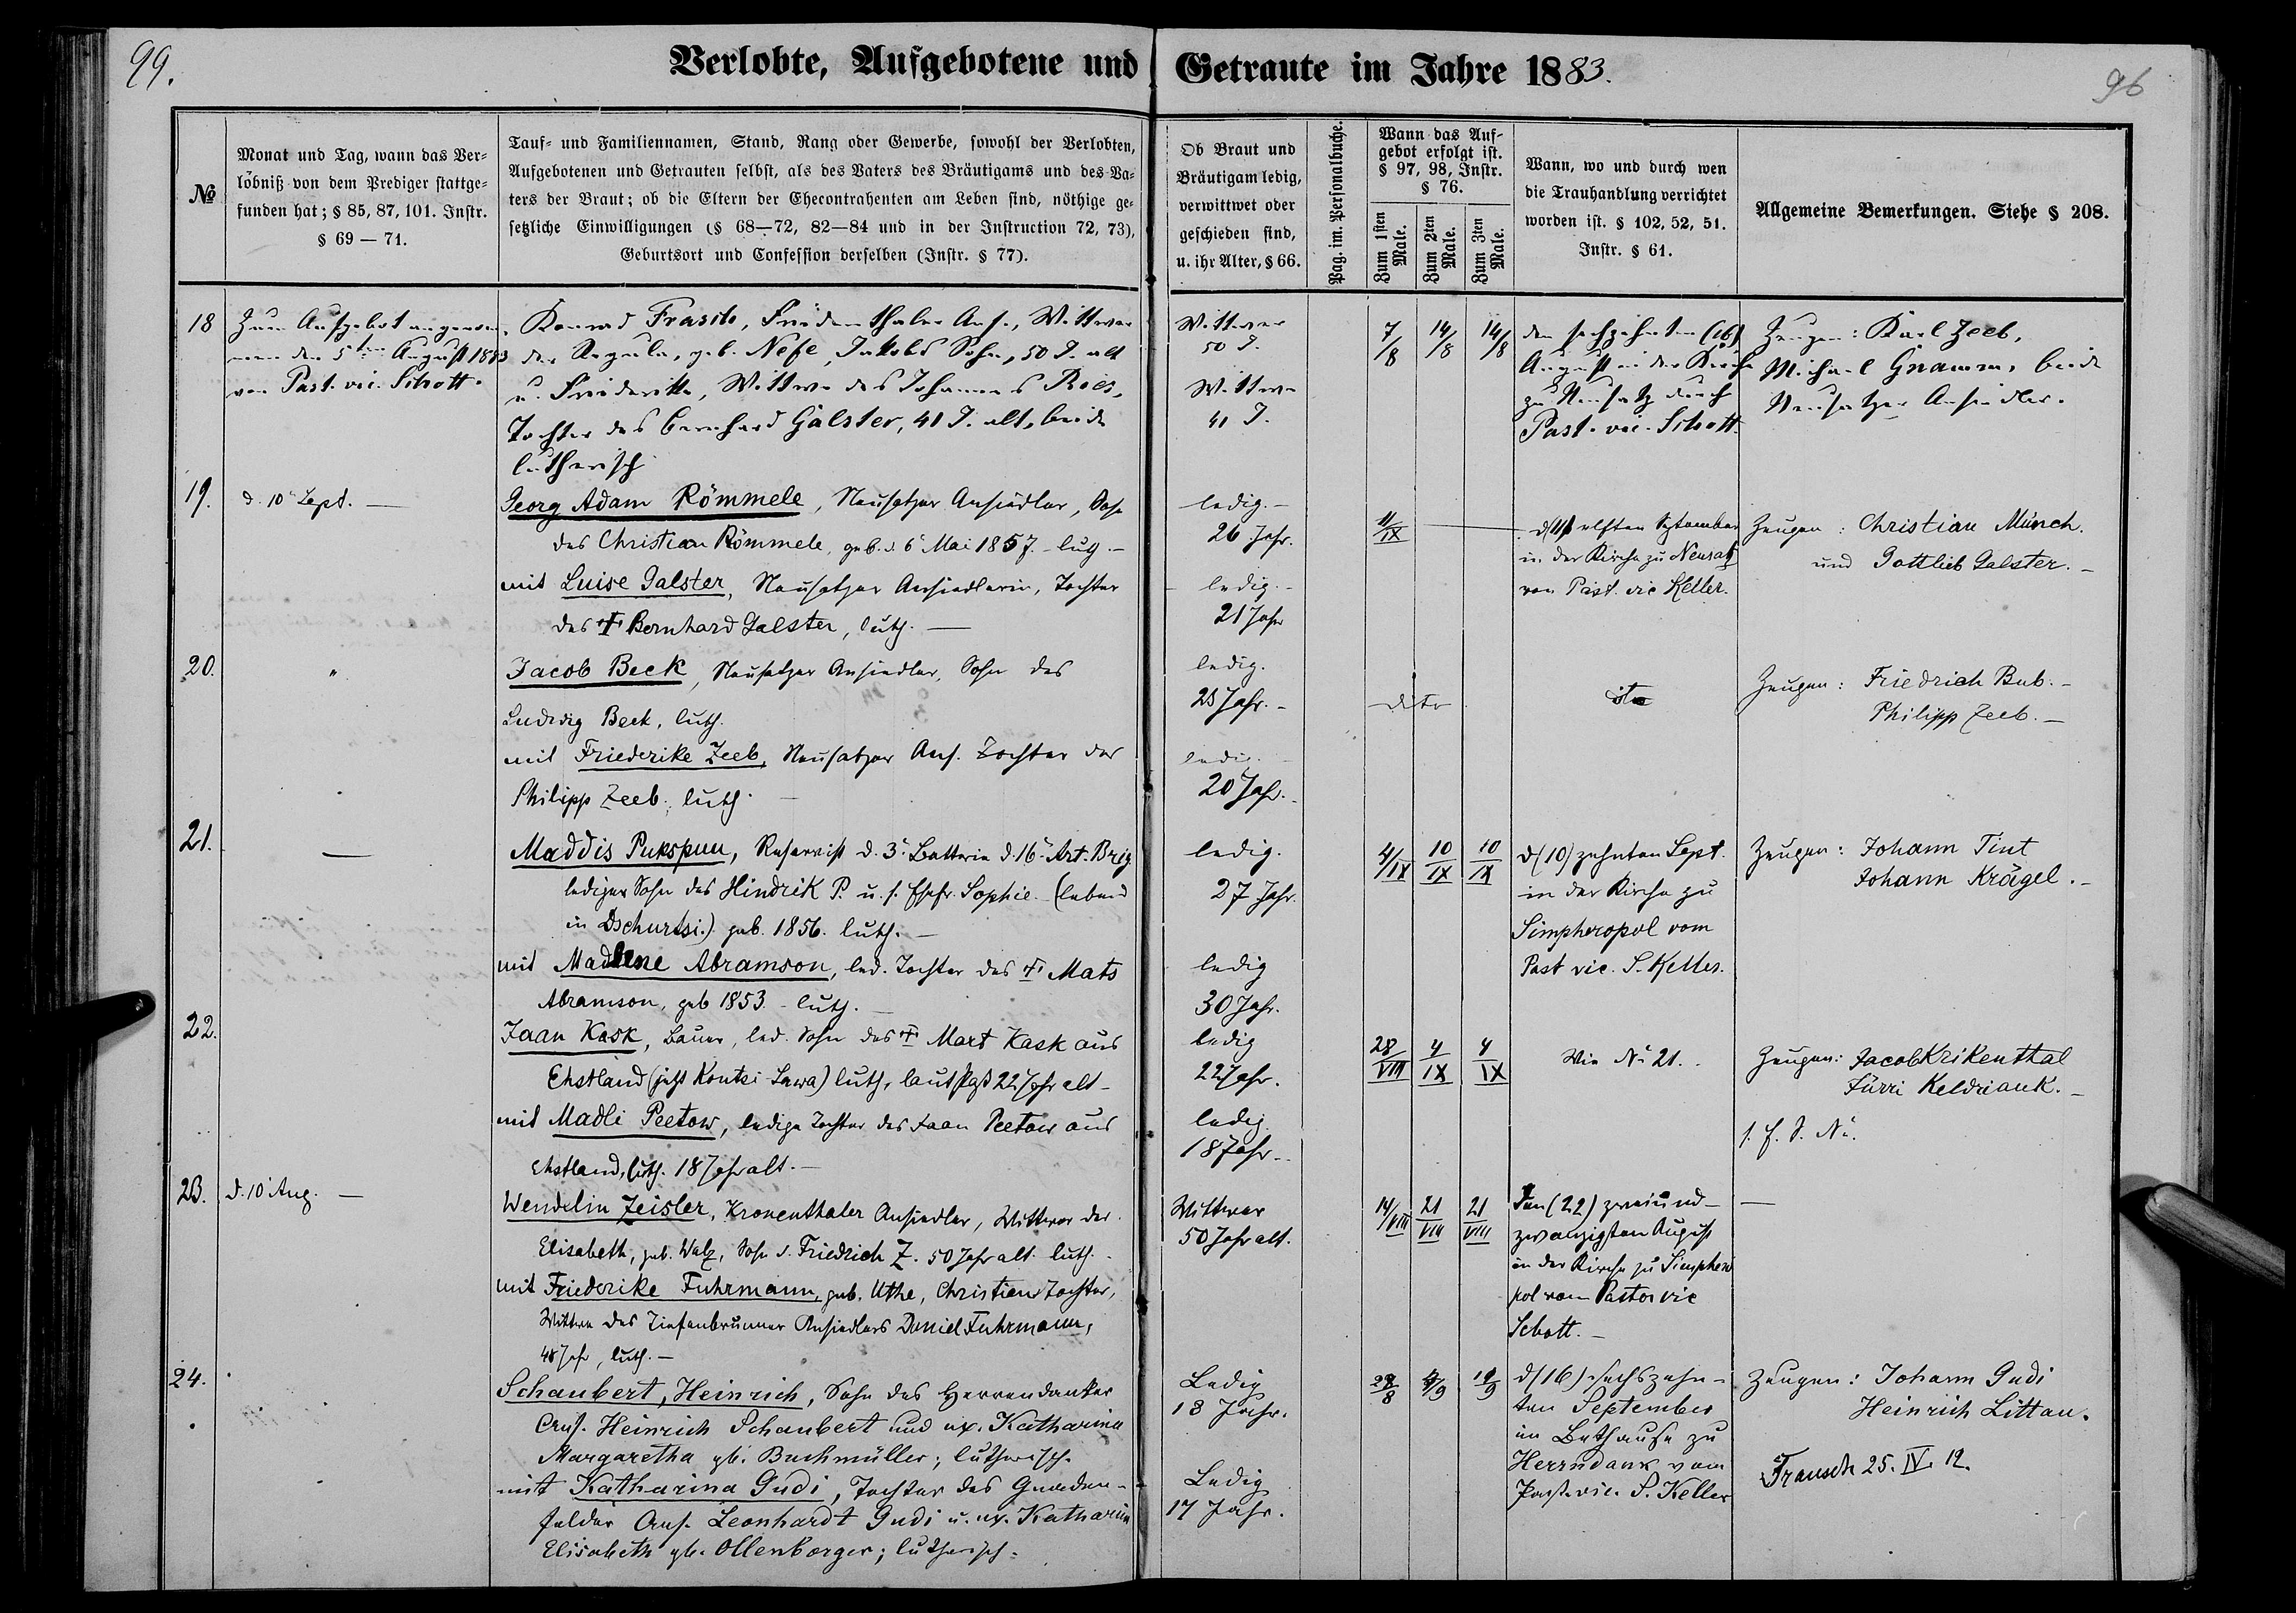 99.
Verlobte, Aufgebotene und Getraute im Jahre 1883.
96
№
Monat und Tag, wann das Ver-
löbniß von dem Prediger stattge-
funden hat; § 85, 87, 101. Instr.
§ 69 — 71.
Tauf- und Familiennamen, Stand, Rang oder Gewerbe, sowohl der Verlobten,
Aufgebotenen und Getrauten selbst, als des Vaters des Bräutigams und des Va-
ters der Braut; ob die Eltern der Ehecontrahenten am Leben sind, nöthige ge-
setzliche Einwilligungen (§ 68—72, 82—84 und in der Instruction 72, 73),
Geburtsort und Confession derselben (Instr. § 77).
Ob Braut und
Bräutigam ledig,
verwittwet oder
geschieden sind,
u. ihr Alter, § 66.
Pag. im. Personalbuche.
Wann das Auf-
gebot erfolgt ist.
§ 97, 98, Instr.
§ 76.
Zum 1sten
Male.
Zum 2ten
Male.
Zum 3ten
Male.
Wann, wo und durch wen
die Trauhandlung verrichtet
worden ist. § 102, 52, 51.
Instr. § 61.
Allgemeine Bemerkungen. Siehe § 208.
18
Zum Aufgebot angenom-
men den 5ten August 1883
von Past. vic. Schott.
Konrad Frasch, Friedenthaler Ans., Wittwer
der Regula, geb. Nefe, Jakobs Sohn, 50 J. alt
u. Friederike, Wittwe des Johannes Ries,
Tochter des Bernhard Galster, 41 J. alt, beide
lutherisch
Wittwer
50 J.
Wittwe
41 J.
7/8
14/8
14/8
den sechzehnten (16)
August in der Kirche
zu Neusatz durch
Past. vic. Schott.
Zeugen: Karl Zeeb,
Michael Gnamm, beide
Neusatzer Ansiedler.
19.
d. 10 Sept. —
Georg Adam Römmele, Neusatzer Ansiedler, Sohn
des Christian Römmele, geb. d. 6 Mai 1857. luth. —
mit Luise Galster, Neusatzer Ansiedlerin, Tochter
des † Bernhard Galster, luth. —
ledig. —
26 Jahr.
ledig. —
21 Jahr
11/IX
d (11) elften September
in der Kirche zu Neusatz
von Past. vic Keller.
Zeugen: Christian Münch.
und Gottlieb Galster. —
20.
"
Jacob Beck, Neusatzer Ansiedler, Sohn des
Ludwig Beck, luth.
mit Friederike Zeeb, Neusatzer Ans. Tochter des
Philipp Zeeb, luth. —
ledig.
25 Jahr. —
ledig. —
20 Jahr. —
dito
dito
Zeugen: Friedrich Bub. —
Philipp Zeeb. —
21.
—
Maddis Pukspuu, Reservist d. 3. Batterie d. 16. Art. Brig
lediger Sohn des Hindrik P. u. s. Ehefr. Sophie. (lebend
in Dschurtsi.) geb. 1856. luth. —
mit Madlene Abramson, led. Tochter des † Mats
Abramson, geb 1853 — luth. —
ledig.
27 Jahr.
ledig
30 Jahr.
4/IX
10/IX
10/IX
d (10) zehnten Sept.
in der Kirche zu
Simpheropol vom
Past vic. S. Keller.
Zeugen: Johann Tint
Johann Krägel. —
22.
Jaan Kask, Bauer, led. Sohn des † Mart Kask aus
Ehstland (jetzt Kontsi-Sawa) luth, laut Paß 22 Jahr alt —
mit Madli Peetow, ledige Tochter des Jaan Peetow aus
Ehstland, luth. 18 Jahr alt. —
ledig
22 Jahr.
ledig
18 Jahr. —
28/VIII
4/IX
4/IX
Wie № 21.
Zeugen: Jacob Krikenthal
Jürri Keldriank. —
23.
d. 10 Aug. —
Wendelin Zeisler, Kronenthaler Ansiedler, Wittwer der
Elisabeth, geb. Walz, Sohn d. Friedrich Z. 50 Jahr alt luth.
mit Friederike Fuhrmann, geb. Uthe, Christians Tochter,
Wittwe des Tiefenbrunner Ansiedlers Daniel Fuhrmann,
48 Jahr, luth. —
Wittwer
50 Jahr alt.
14/VIII
21/VIII
21/VIII
Den (22) zweiund-
zwanzigsten August
in der Kirche zu Simphero
pol vom Pastor vic
Schott. —
—
24.
Schaubert, Heinrich, Sohn des Herrendanker
Ans. Heinrich Schaubert und ux. Katharina
Margaretha geb. Buchmüller; lutherisch.
mit Katharina Gudi, Tochter des Gnaden-
felder Ans. Leonhardt Gudi u. ux. Katharina
Elisabeth geb. Ollenborger; lutherisch.
Ledig
18 Jahr.
Ledig
17 Jahr.
d (16) sechszehn-
ten September
im Bethause zu
Herrndank vom
Past. vic. S. Keller
Zeugen: Johann Gudi
Heinrich Littau.
Trausch 25. IV. 12.